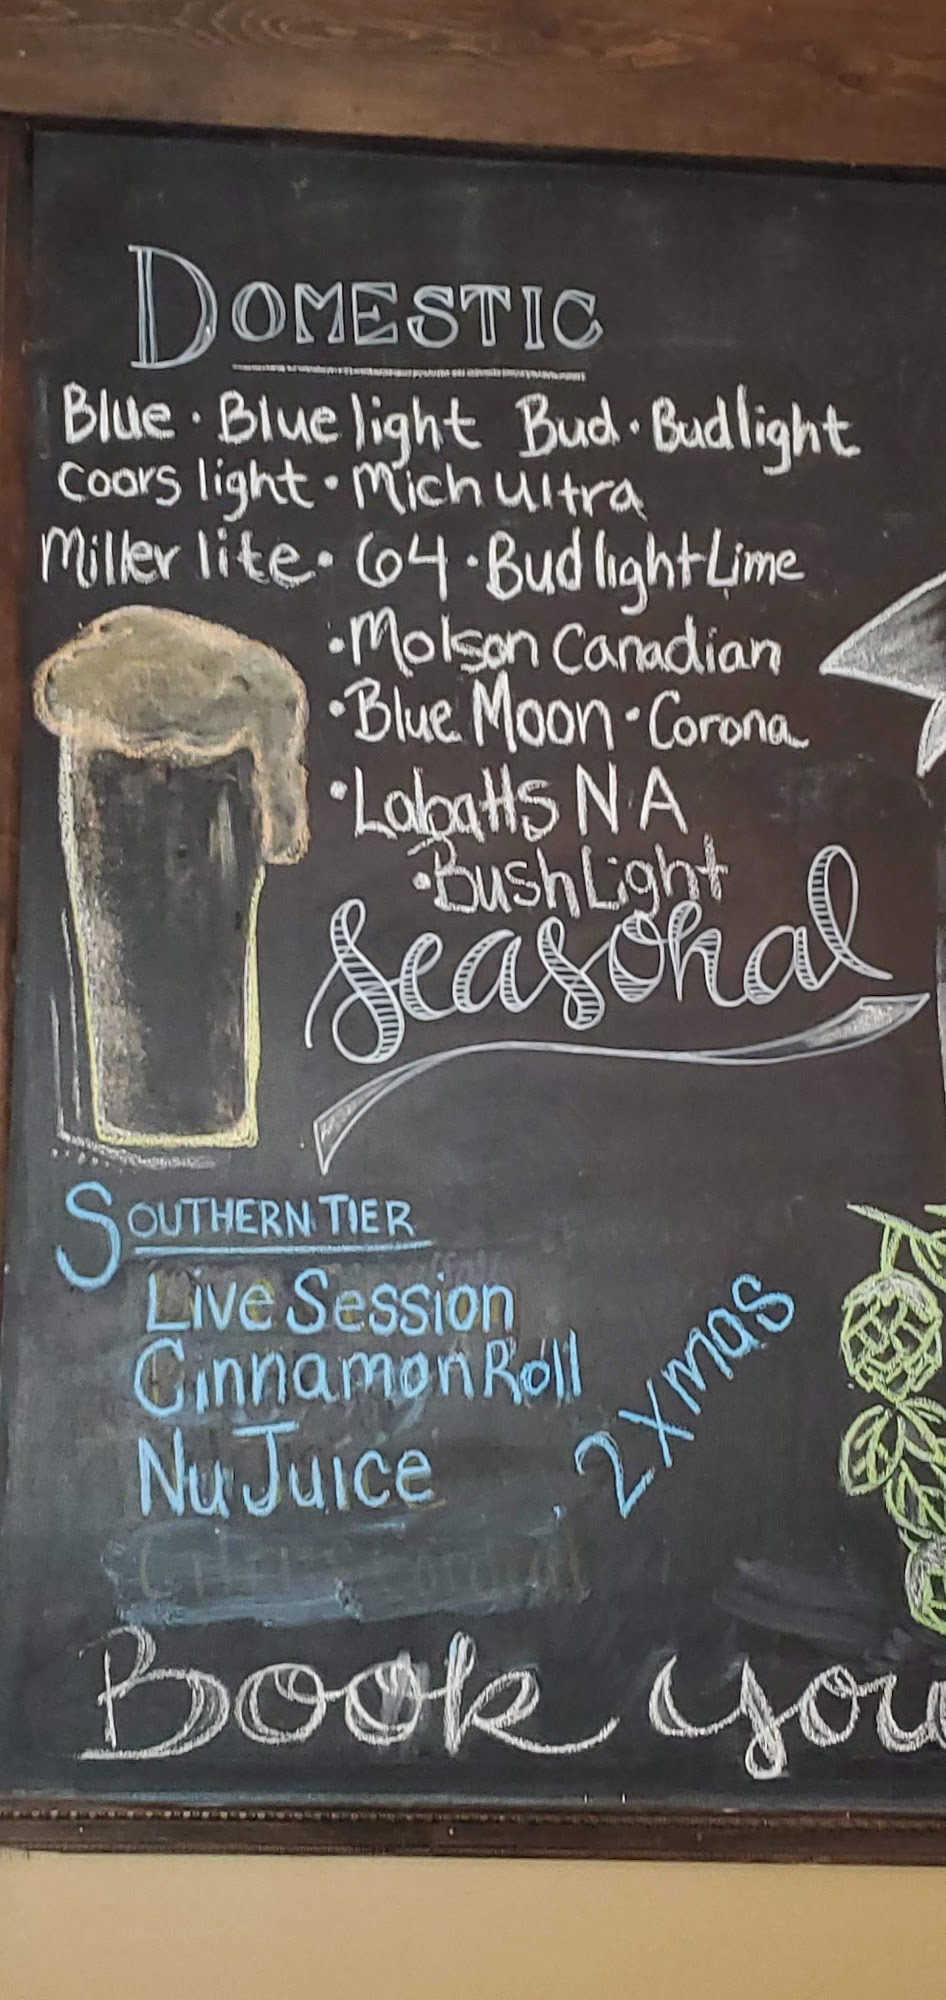 DOMESTIC
Blue · Blue light Bud · Bud light
Coors light · Mich Ultra
Miller lite · 64 · Bud light Lime
· Molson Canadian
· Blue Moon · Corona
· Labatts N A
· Bush Light
Seasonal
SOUTHERN TIER
Live Session
Cinnamon Roll
2 Xmas
Nu Juice
Book you